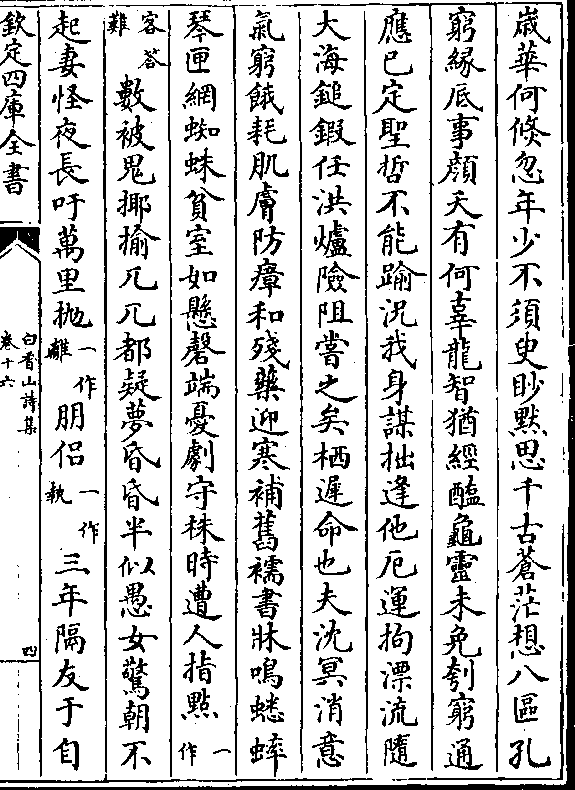 歲華何倏忽年少不須臾眇黙思千古蒼茫想八區孔
窮縁底事顔夭有何辜龍智猶經醢龜靈未免刳窮通
應已定聖哲不能踰况我身謀拙逢他厄運拘漂流隨
大海鎚鍜任洪爐險阻嘗之矣栖遲命也夫沈冥消意
氣窮餓耗肌膚防瘴和殘藥迎寒補舊襦書牀鳴蟋蟀
琴匣網蜘蛛貧室如懸磬端憂劇守株時遭人指點一作
客答難數被鬼揶揄兀兀都疑夢昏昏半似愚女驚朝不
起妻怪夜長吁萬里抛一作離朋侣一作執三年隔友于自
欽定四庫全書
白香山詩集
卷十六
四